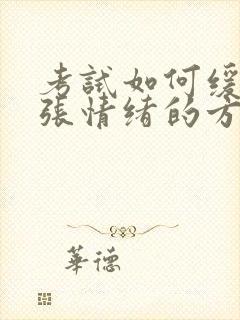 考試如何緩
張情绪的方
華德